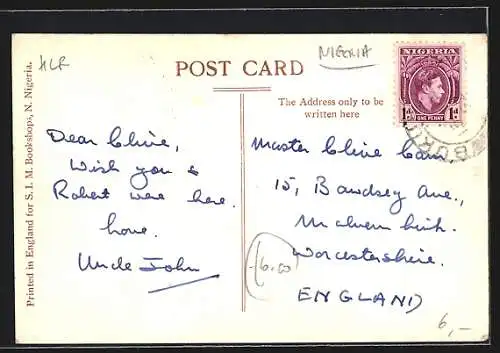 HLR
NIGERIA
POST CARD
The Address only to be
written here
NIGERIA
1d ONE PENNY 1d
BURU
Printed in England for S. I. M. Bookshops, N. Nigeria.
Dear Clive,
Wish you &
Robert were here.
Love.
Uncle John
Master Clive
15, Bawdsey Ave.,
Malvern Link.
Worcestershire.
ENGLAND
6.00
6,-